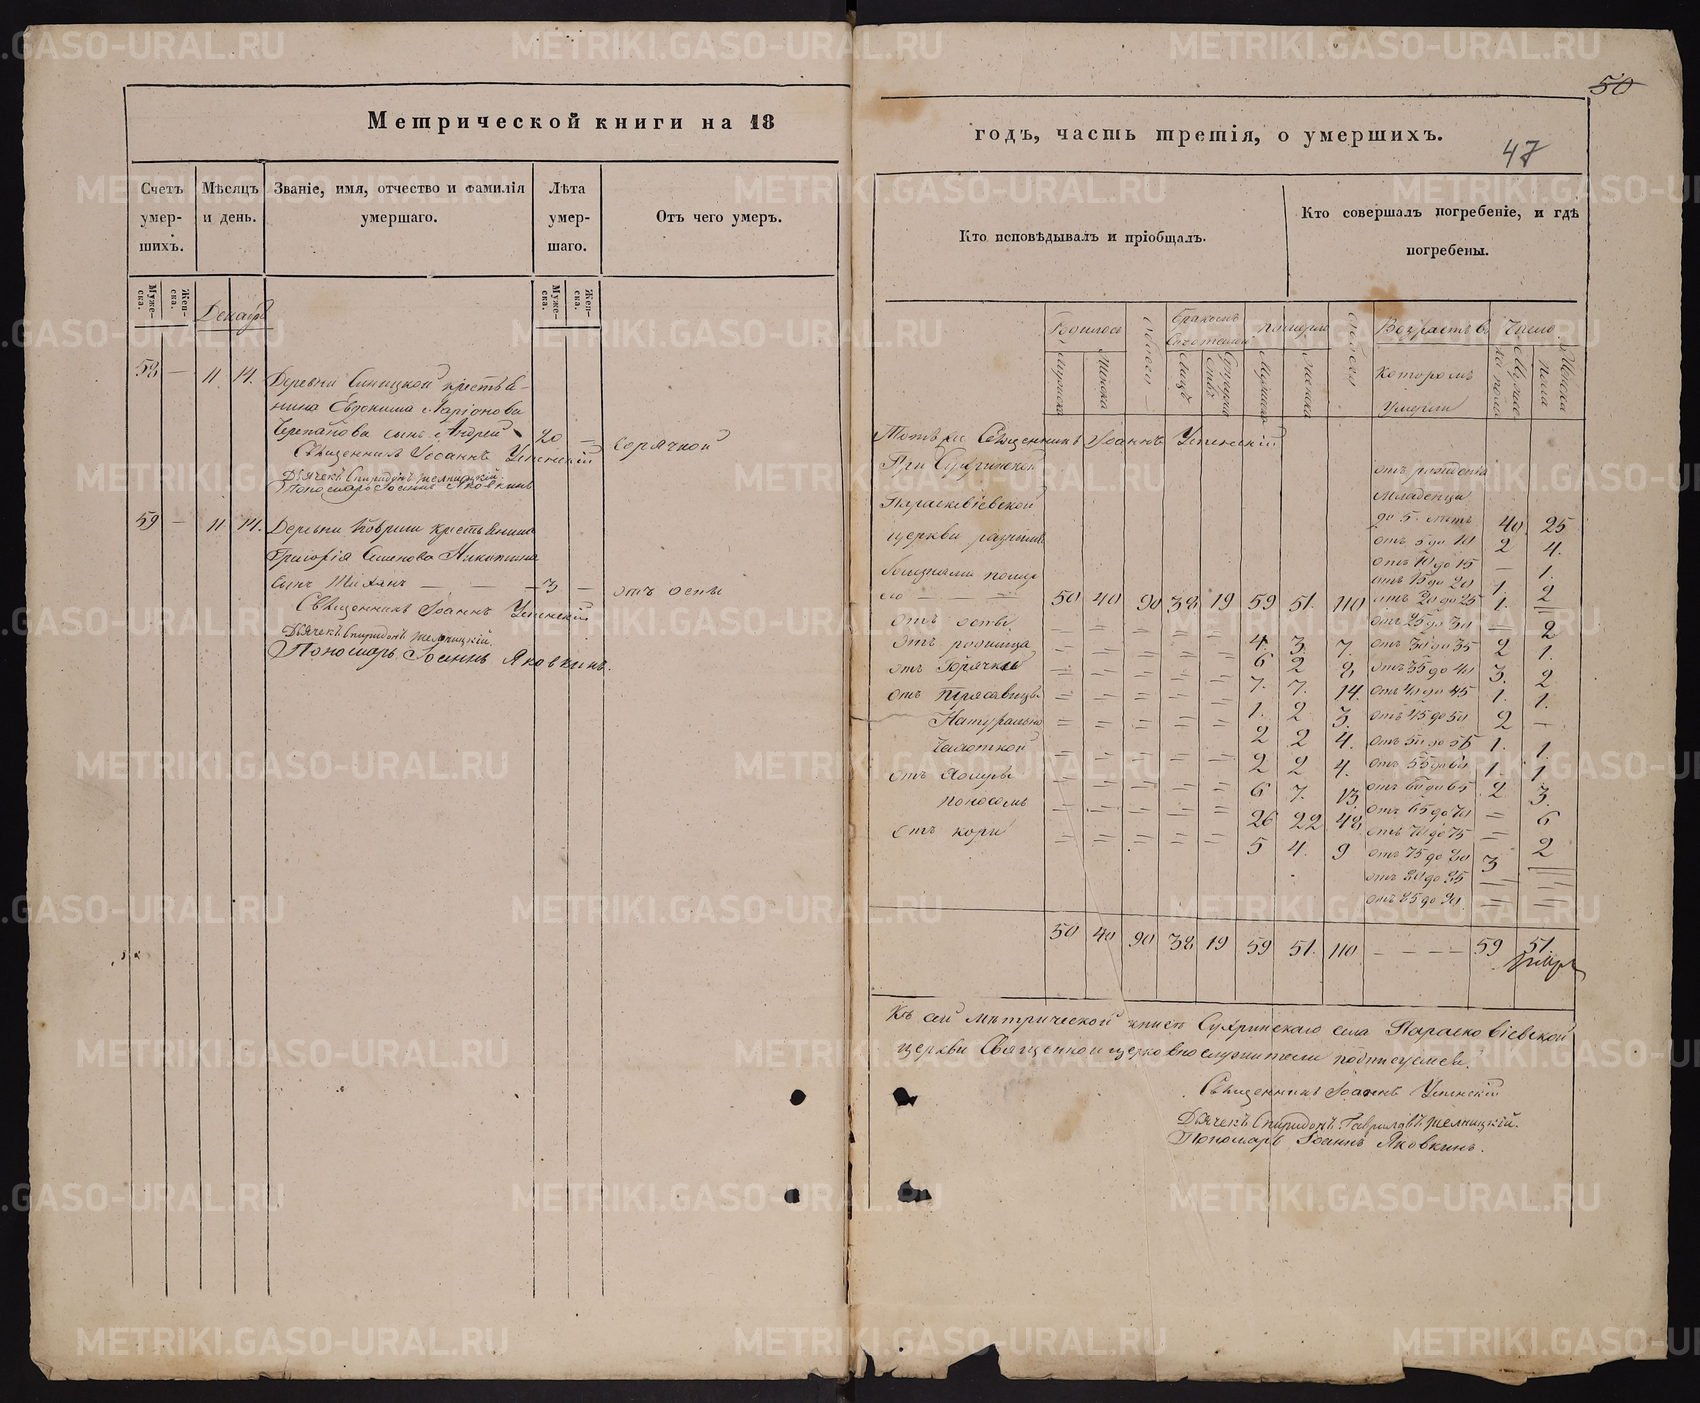 Метрической книги на 18
Счетъ умер- шихъ.
Мѣсяцъ и день.
Званіе, имя, отчество и фамилія умершаго.
Лѣта умер- шаго.
Отъ чего умеръ.
Муже- ска.
Жен- ска.
Муже- ска.
Жен- ска.
Декабрь
58 — 11. 14. Деревни Синицкой крестья-
нина Евдокима Ларіонова
Черепанова сынъ Андрей 20 — горячкой
Священникъ Іоаннъ Успенскій
Дьячекъ Спиридонъ
Пономарь Іоаннъ Яковкинъ
59 — 11 14. Деревни крестьянина
Григорія Семенова Никитина
сынъ — — 3 — отъ оспы
Священникъ Іоаннъ Успенскій
Дьячекъ Спиридонъ
Пономарь Іоаннъ Яковкинъ.
50
годъ, часть третія, о умершихъ.
47
Кто исповѣдывалъ и пріобщалъ.
Кто совершалъ погребеніе, и гдѣ погребены.
Возрастъ въ
которомъ
умерли
Число
Мужеска
пола
Женска
Тотъ же Священникъ Іоаннъ Успенскій
При
Параскевіевской
церкви разными
болѣзнями
50 40 90 38 19 59 51. 110
отъ оспы 4. 3. 7.
отъ родимца 6 2 8
отъ горячки 7. 7. 14.
отъ 1. 2 3.
Натурально 2 2 4.
Чахоткой 2 2 4.
отъ 6 7. 13.
поносомъ 26 22 48
отъ кори 5 4. 9
отъ рожденія
младенцы
до 5 лѣтъ 40. 25
отъ 5 до 10 2 4.
отъ 10 до 15 — 1.
отъ 15 до 20 1. 2
отъ 20 до 25 1. —
отъ 25 до 30 — 2
отъ 30 до 35 2 1.
отъ 35 до 40 3. 2
отъ 40 до 45 1. 1.
отъ 45 до 50 2 —
отъ 50 до 55 1. 1
отъ 55 до 60 1. 1
отъ 60 до 65 2 3.
отъ 65 до 70 — 6
отъ 70 до 75 — 2
отъ 75 до 80 3 —
отъ 80 до 85 — —
отъ 85 до 90 — —
50 40 90 38 19 59 51. 110 — — — — 59 51.
Къ сей метрической книгѣ Сухринскаго села Параскевіевской
церкви Священно и церковнослужители подписуемся.
Священникъ Іоаннъ Успенскій
Дьячекъ Спиридонъ Гавриловъ
Пономарь Іоаннъ Яковкинъ.
METRIKI.GASO-URAL.RU